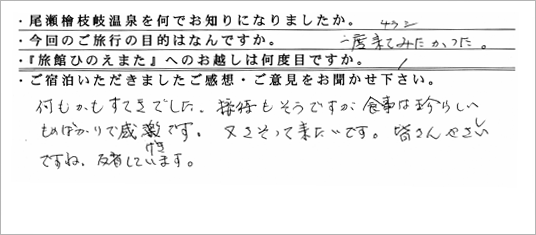 ・尾瀬檜枝岐温泉を何でお知りになりましたか。 チラシ
・今回のご旅行の目的はなんですか。 一度来てみたかった。
・『旅館ひのえまた』へのお越しは何度目ですか。 1
・ご宿泊いただきましたご感想・ご意見をお聞かせ下さい。
何もかもすてきでした、接待もそうですが、食事は珍らしい
ものばかりで感激です。 又さそって来たいです。皆さんやさしい
げき
ですね、 しています。